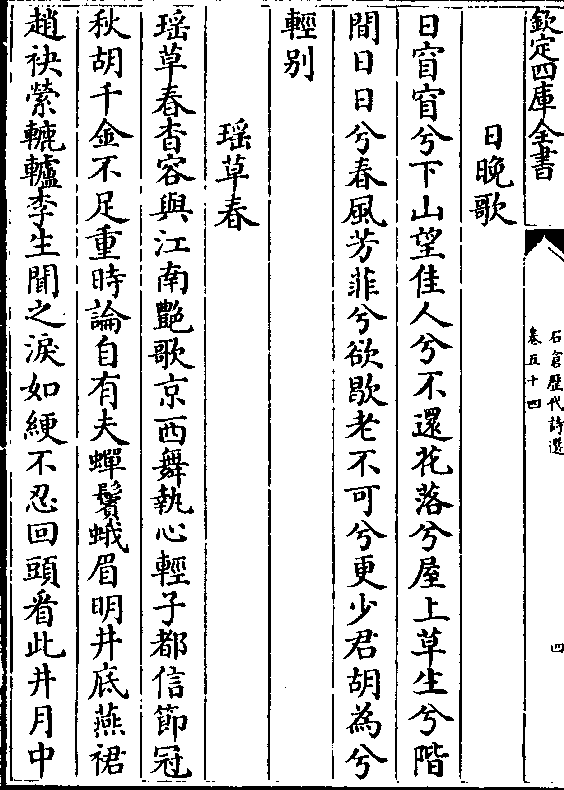 欽定四庫全書
石倉歷代詩選
卷五十四
四
日晚歌
日窅窅兮下山望佳人兮不還花落兮屋上草生兮階
間日日兮春風芳菲兮欲歇老不可兮更少君胡為兮
輕别
瑶草春
瑶草春杳容與江南艷歌京西舞執心輕子都信節冠
秋胡千金不足重時論自有夫蟬鬢蛾眉明井底燕裙
趙袂縈轆轤李生聞之淚如綆不忍回頭看此井月中